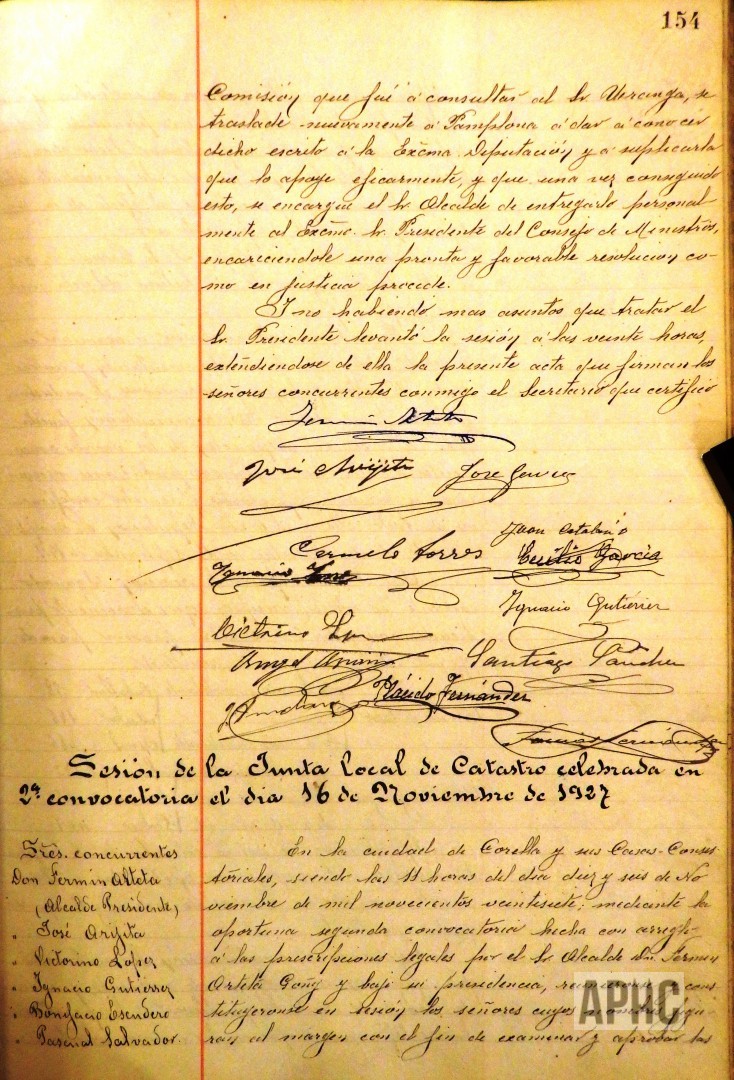 154
Comisión que fué á consultar al Sr. Uranga, se
traslade nuevamente á Pamplona á dar á conocer
dicho escrito á la Excma. Diputación y á suplicarla
que lo apoye eficazmente, y que una vez conseguido
esto, se encargue el Sr. Alcalde de entregarlo personal
mente al Excmo. Sr. Presidente del Consejo de Ministros,
encareciendole una pronta y favorable resolucion co-
mo en justicia procede.
Y no habiendo mas asuntos que tratar el
Sr. Presidente levantó la sesión á las veinte horas,
extendiendose de ella la presente acta que firman los
señores concurrentes conmigo el Secretario que certifico
Fermin Arteta
José Arigita José Garcia
Juan Catalán
Carmelo Torres Emilio Garcia
Ignacio
Ignacio Gutierrez
Victorino Lopez
Angel Santiago Sanchez
Plácido Fernández
Tomás Fernández
Sesión de la Junta local de Catastro celebrada en
2ª convocatoria el dia 16 de Noviembre de 1927
Sres. concurrentes
Don Fermin Arteta
(Alcalde Presidente)
" José Arigita
" Victorino Lopez
" Ignacio Gutierrez
" Bonifacio Escudero
" Pascual Salvador.
En la ciudad de Corella y sus Casas-Consis-
toriales, siendo las 11 horas del dia diez y seis de No
viembre de mil novecientos veintisiete; mediante la
oportuna segunda convocatoria hecha con arreglo
á las prescripciones legales por el Sr. Alcalde Dn. Fermin
Arteta Goñy y bajo su presidencia, reunieron y cons
tituyeronse en sesión los señores cuyos nombres figu-
ran al margen con el fin de examinar y aprobar las
APHC